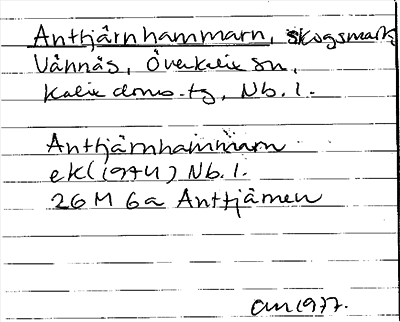 Anttjärnhammarn, skogsmark,
Vännäs, Överkalix sn,
Kalix doms.tg, Nb. l.
Anttjärnhammarn
ek (1974) Nb. l.
26 M 6a Anttjärnen
1977.